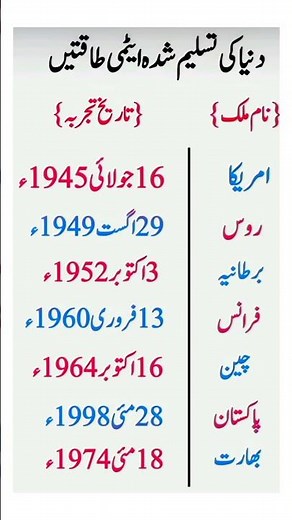 دنیا کی تسلیم شدہ ایٹمی طاقتیں
{نام ملک} {تاریخ تجربہ}
امریکا 16 جولائی 1945ء
روس 29 اگست 1949ء
برطانیہ 3 اکتوبر 1952ء
فرانس 13 فروری 1960ء
چین 16 اکتوبر 1964ء
پاکستان 28 مئی 1998ء
بھارت 18 مئی 1974ء